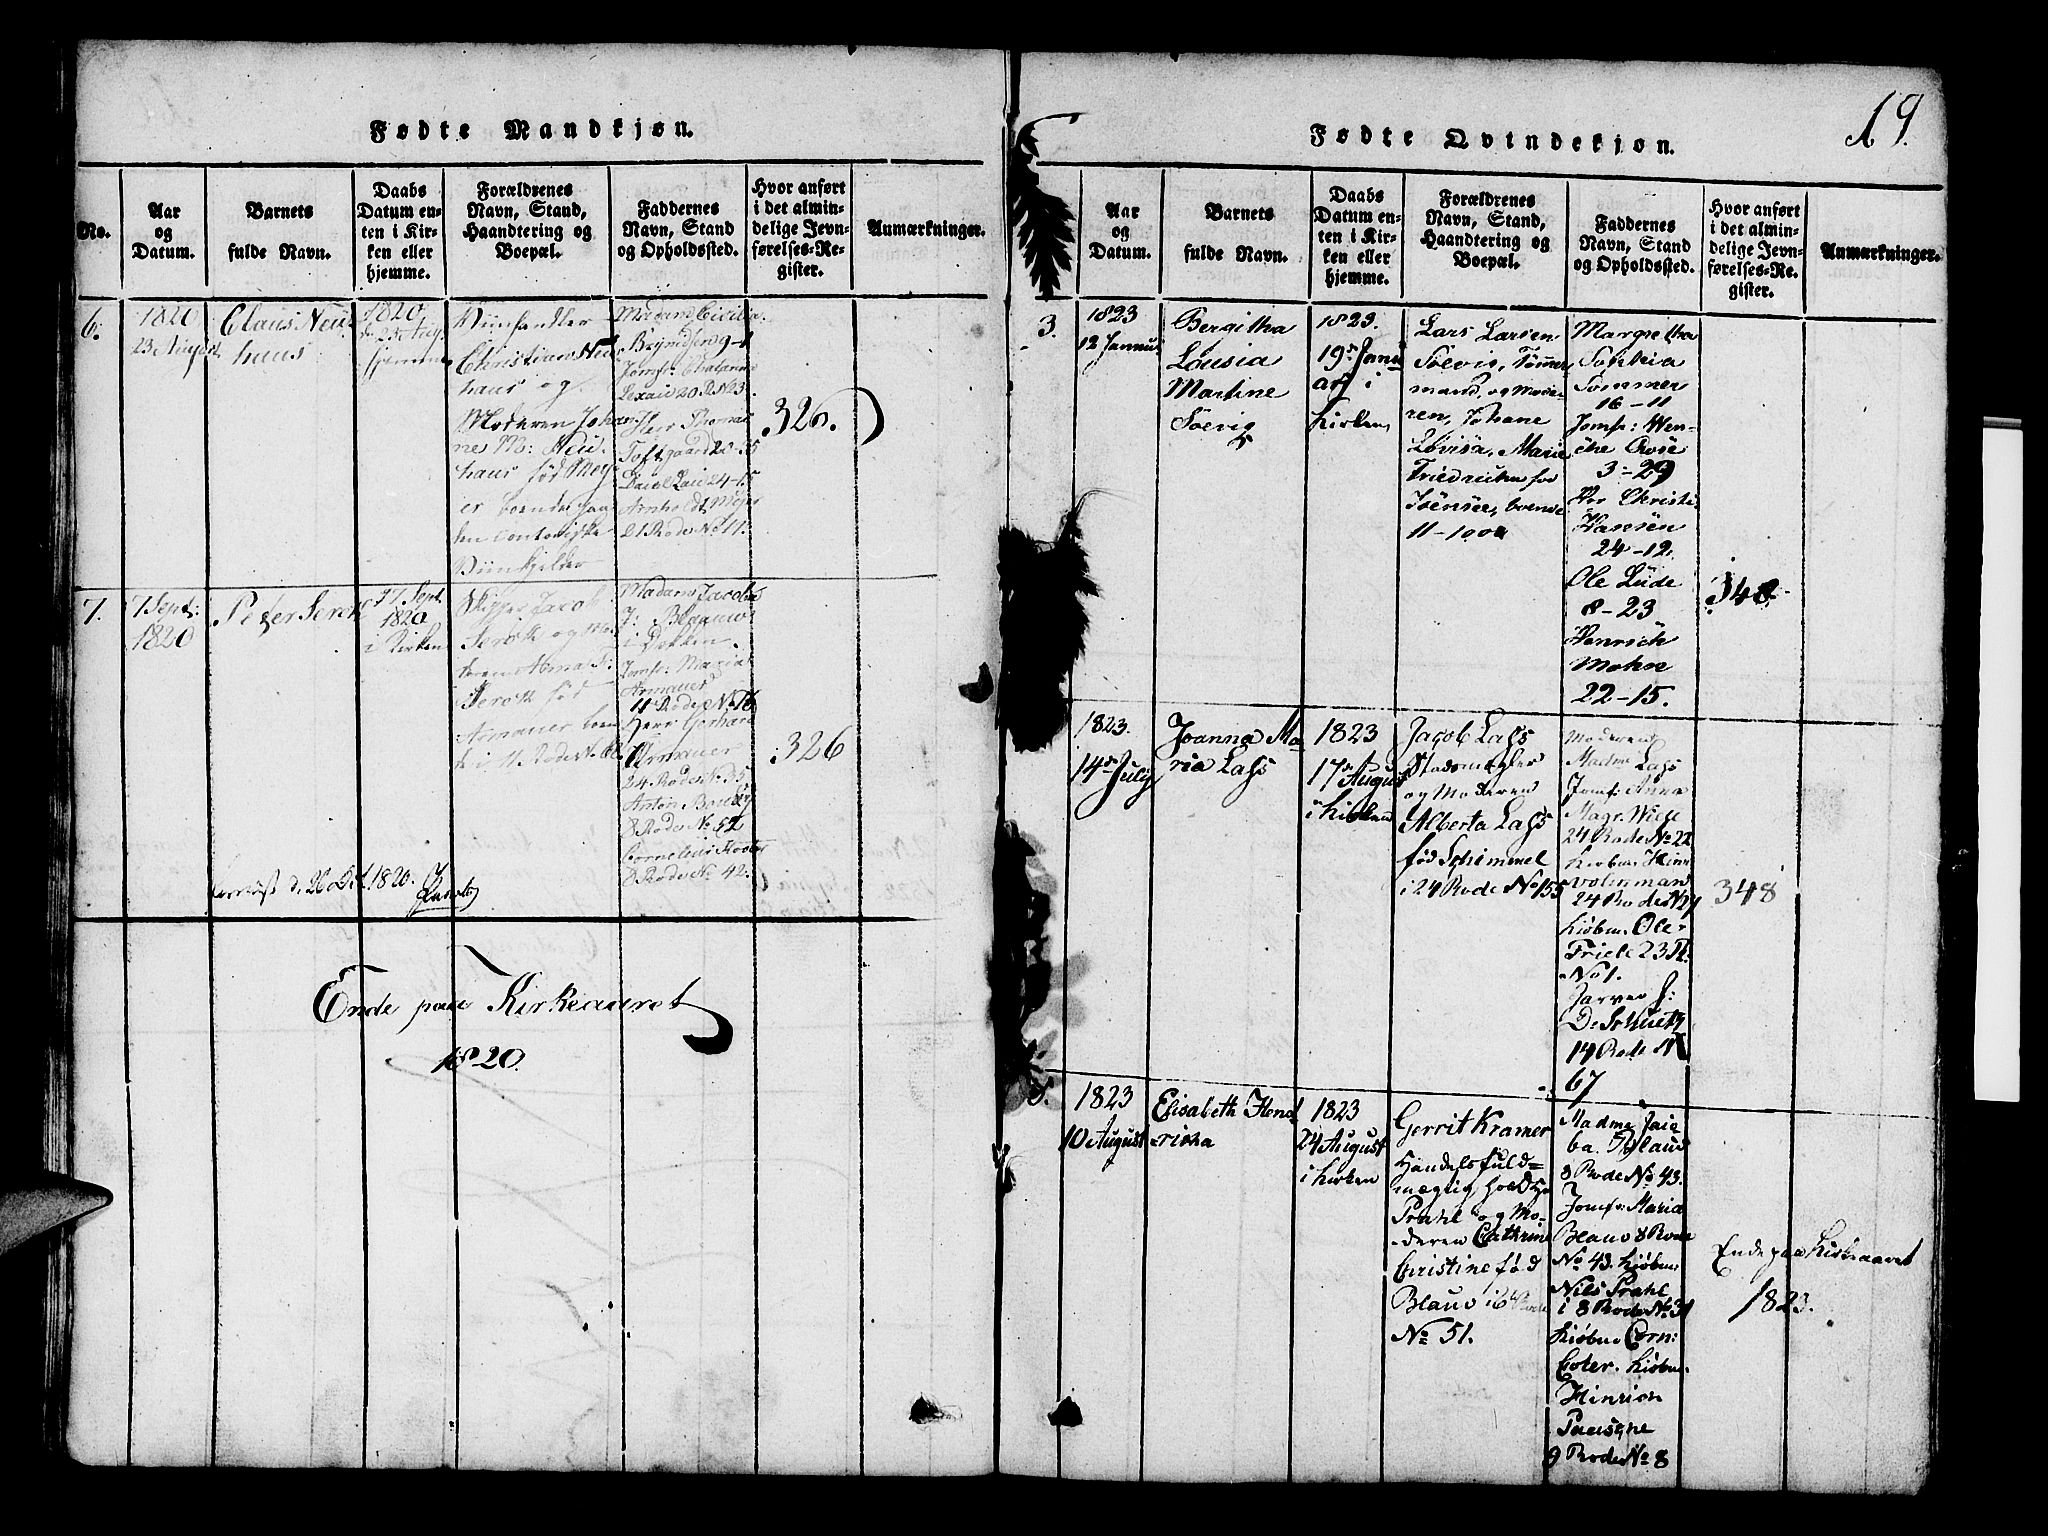 Fødte Mandkjøn.
No.
Aar
og
Datum.
Barnets
fulde Navn.
Daabs
Datum en-
ten i Kir-
ken eller
hjemme.
Forældrenes
Navn, Stand,
Haandtering og
Boepæl.
Faddernes
Navn, Stand
og Opholdssted.
Hvor anført
i det almin-
delige Jevn-
førelses-Re-
gister.
Anmærkninger.
6.
1820
23 August
Claus Neu-
haus
1820
d. 25 Aug.
hjemme
Viinhandler
Christian Neu
haus og
Moderen Johan
ne M: Neu-
haus fød Mey-
er boende paa
den Contoriske
Viinkjelder
Madam Cicilia
9-1
Jomfr:
20 R. N 23.
Herr Thomas
Toftgaard 20-35
24-15
Arnholdt Meyer
21 Rode No 11.
326.
7.
7 Sept:
1820
Peter Serok
17. Sept
1820
i Kirken
Skipper Jacob
Serok og Mo-
deren Anna F.
Serok fød
Armauer boen
de i 11 Rode No.
Madam Jacoba
J: Blaauw
i Dokken
Jomfr: Maria
Armauer
11 Rode No 76
Herr Gerhard
Armauer
24 Rode No. 35
Anton
8 Rode No 52
Cornelius
8 Rode No 42.
326
d. 26 Dec 1820.
Ende paa Kirkeaaret
1820.
19.
Fødte Qvindekjøn.
Aar
og
Datum.
Barnets
fulde Navn.
Daabs
Datum en-
ten i Kir-
ken eller
hjemme.
Forældrenes
Navn, Stand,
Haandtering og
Boepæl.
Faddernes
Navn, Stand
og Opholdssted.
Hvor anført
i det almin-
delige Jevn-
førelses-Re-
gister.
Anmærkninger.
3.
1823
12 Januar
Bergitha
Lousia
Martine
Soevig
1823.
19de Janu
ar i
Kirken
Lars Larsen
Soevig, Tømmer
mand, og Mode-
ren, Johane
Lovisa, Marie
Friedriken fød
boende
11-100
Margretha
Sophia
Sommer
16-11
Jomfr: Wen-
che
3-29
Hr Christi
Hansen
24-12.
Ole Lüde
8-23
Henrich
Mohne
22-15.
348
1823.
14de July
Joanna Ma-
ria Lass
1823
17de August
i Kirken
Jacob Lass
Stadsmægler
og Moderen
Alberta Lass
fød Schimmel
i 24 Rode No 155
Moderen
Madme Lass
Jomfr: Anna
Magr. Wiese
24 Rode No 22
Kiøbm. Hinr
Wolerman
24 Rode No 27
Kiøbm. Ole
Friele 23 R.
No 1.
J:
De Schuets
14 Rode No
67
348
5.
1823
10 August
Elisabeth Hend
ricka
1823
24 August
i Kirken
Gerrit Kramer
Handelsfuld-
mægtig hos H
Prahl og Mo-
deren Cathrine
Christine fød
Blauv i 6 Rode
No 51.
Madme Jaco-
ba. Blauv
8 Rode No 43.
Jomfr: Maria
Blauv 8 Rode
No 43. Kiøbm.
Nils Prahl
i 8 Rode No 31
Kiøbm Corn:
Coter. Kiøbm.
Hinrich
Paasche
9 Rode No 8
Ende paa Kirkeaaret
1823.